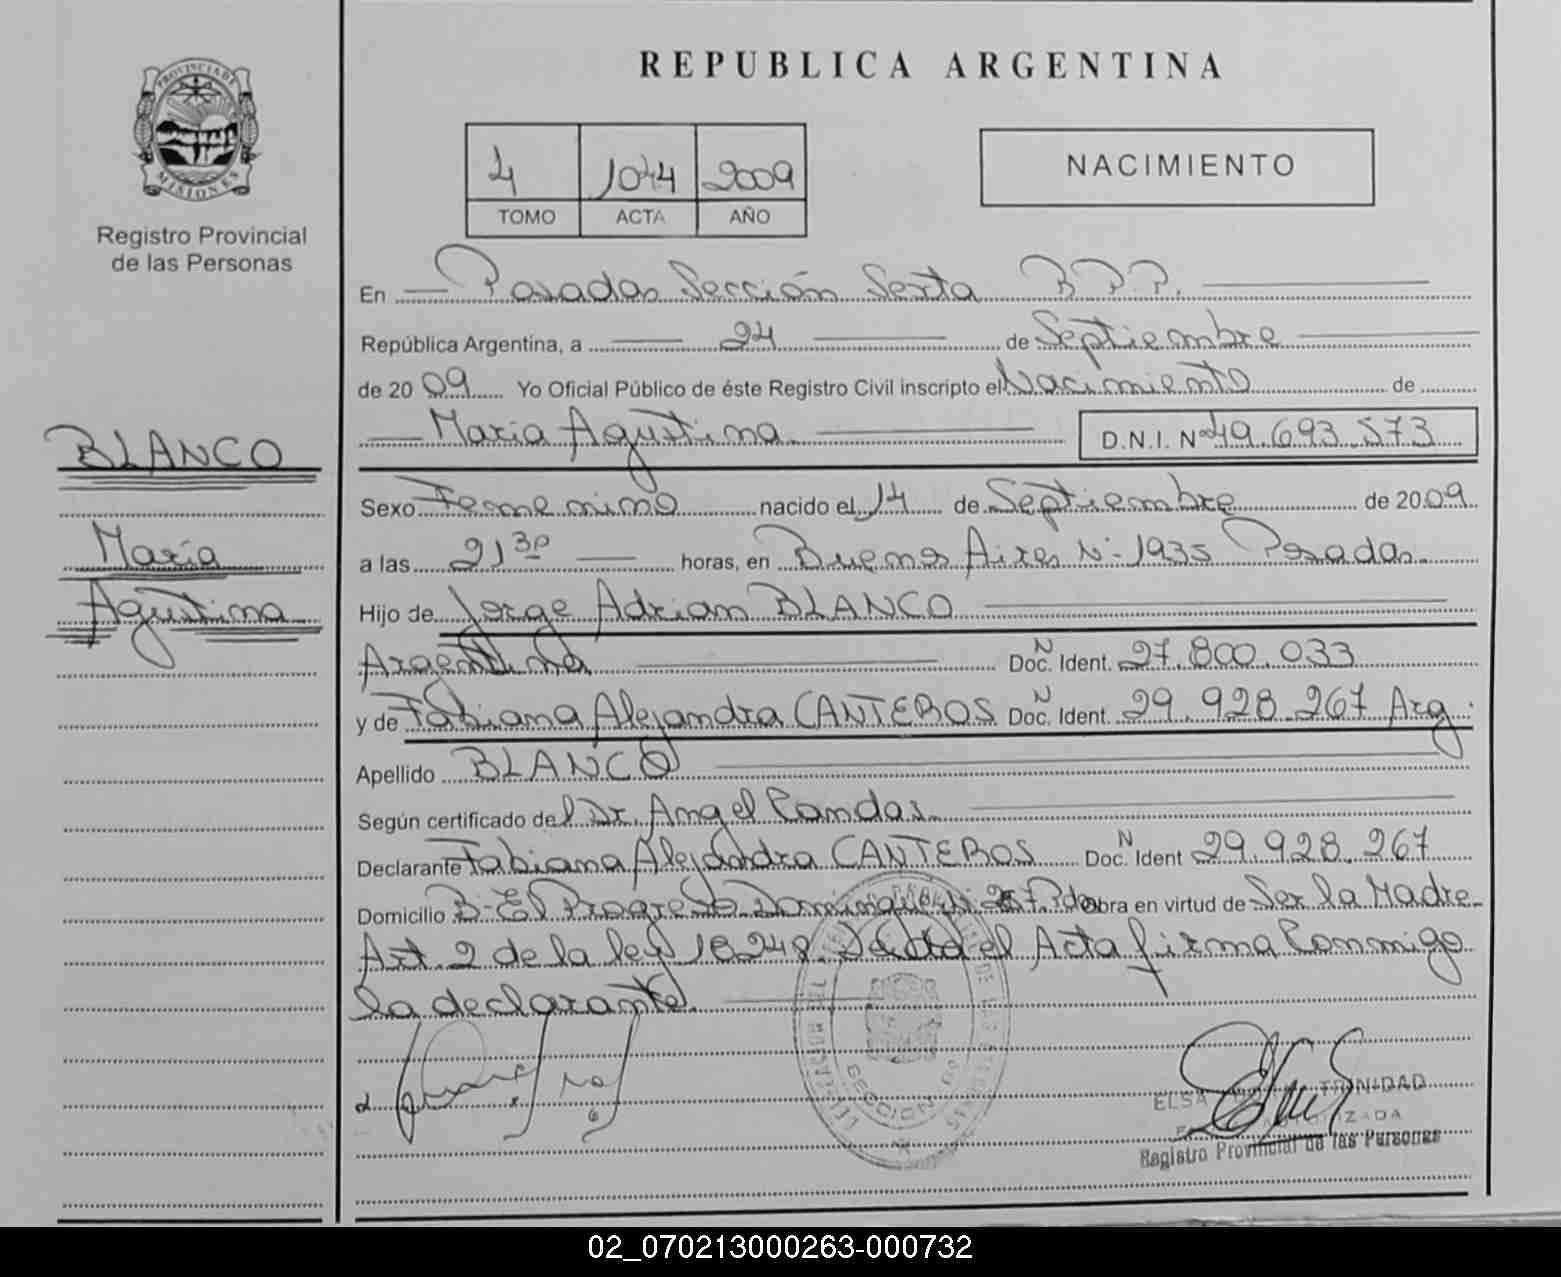 PROVINCIA DE
MISIONES
Registro Provincial
de las Personas
BLANCO
María
Agustina
REPUBLICA ARGENTINA
4 1044 2009
TOMO ACTA AÑO
NACIMIENTO
En Posadas Sección Sexta
República Argentina, a 24 de Septiembre
de 2009 Yo Oficial Público de éste Registro Civil inscripto el Nacimiento de
María Agustina D.N.I. Nº 49.693.573
Sexo Femenino nacido el 14 de Septiembre de 2009
a las 21 30 horas, en Buenos Aires Nº 1935 Posadas
Hijo de Jorge Adrian BLANCO
Argentina Doc. N Ident. 27.800.033
y de Fabiana Alejandra CANTEROS Doc. N Ident. 29.928.267 Arg.
Apellido BLANCO
Según certificado del Dr. Angel
Declarante Fabiana Alejandra CANTEROS Doc. N Ident 29.928.267
Domicilio Bº El Progreso obra en virtud de Ser la Madre
Art. 2 de la ley 18248. el Acta firma Conmigo
la declarante.
SECCION 6ª
ELSA TRINIDAD
Registro Provincial de las Personas
02_070213000263-000732